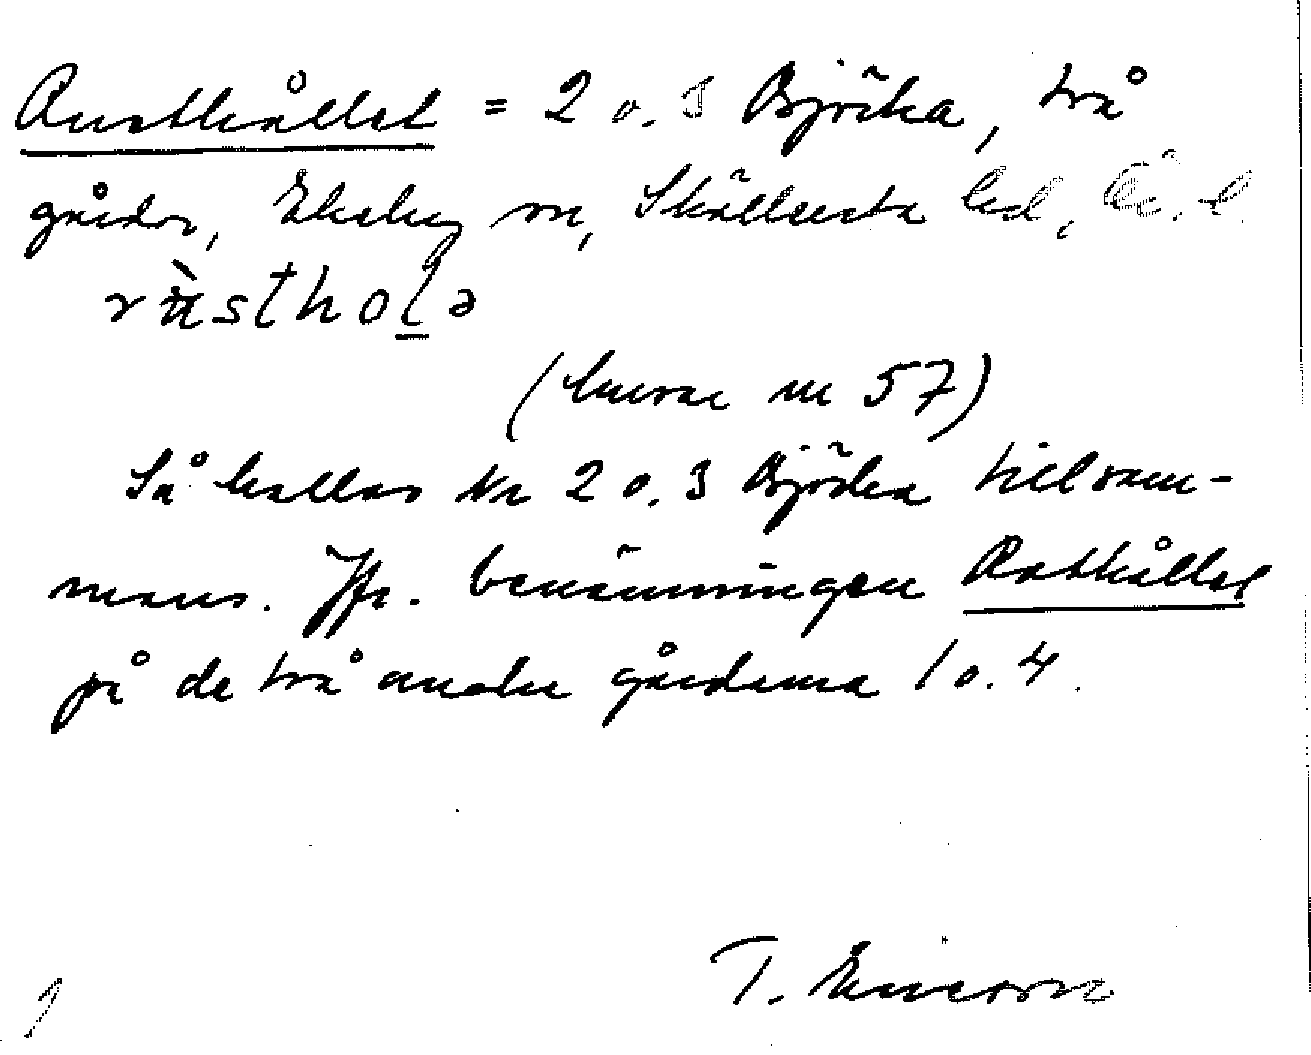 Rusthållet = 2 o. 3 Björka, två
gårdar, Ekeby sn, Sköllersta hd,
(kurva nr 57)
Så kallas Nr 2 o. 3 Björka tillsam-
mans. Jfr. benämningen Rothållet
på de två andra gårdarna 1 o. 4.
T. Ericsson